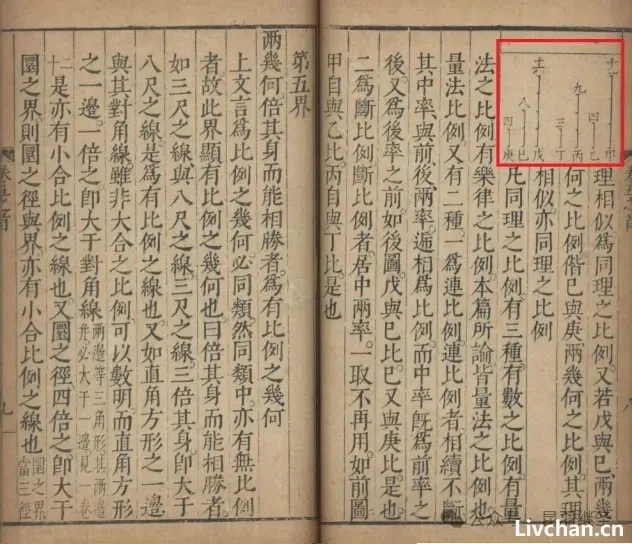 十二
四
九
三
十六
八
四
甲
乙
丙
丁
戊
巳
庚
理相似爲同理之比例又若戊與巳兩幾
何之比例偕巳與庚兩幾何之比例其理
相似亦同理之比例
凡同理之比例有三種有數之比例有量
法之比例有樂律之比例本篇所論皆量法之比例也
量法比例又有二種一爲連比例連比例者相續不斷
其中率與前後兩率遞相爲比例而中率旣爲前率之
後又爲後率之前如後圖戊與巳比巳又與庚比是也
二爲斷比例斷比例者居中兩率一取不再用如前圖
甲自與乙比丙自與丁比是也
第五界
兩幾何倍其身而能相勝者爲有比例之幾何
上文言爲比例之幾何必同類然同類中亦有無比例
者故此界顯有比例之幾何也曰倍其身而能相勝者
如三尺之線與八尺之線三尺之線三倍其身卽大于
八尺之線是爲有比例之線也又如直角方形之一邊
與其對角線雖非大合之比例可以數明而直角方形
之一邊一倍之卽大于對角線兩邊等三角形其兩邊幷必大于一邊見一卷
二十是亦有小合比例之線也又圜之徑四倍之卽大于
圜之界則圜之徑與界亦有小合比例之線也圜之界當三徑
九
Livchan.cn